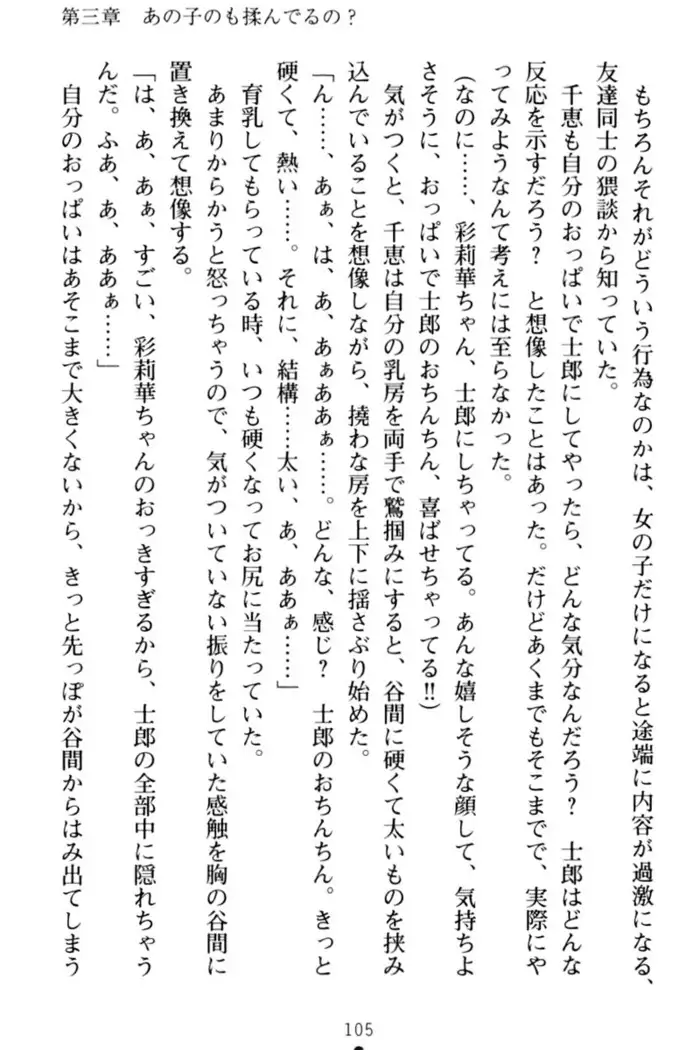 第三章　あの子のも揉んでるの？
もちろんそれがどういう行為なのかは、女の子だけになると途端に内容が過激になる、
友達同士の猥談から知っていた。
千恵も自分のおっぱいで士郎にしてやったら、どんな気分なんだろう？　士郎はどんな
反応を示すだろう？　と想像したことはあった。だけどあくまでもそこまでで、実際にや
ってみようなんて考えには至らなかった。
（なのに……、彩莉華ちゃん、士郎にしちゃってる。あんな嬉しそうな顔して、気持ちよ
さそうに、おっぱいで士郎のおちんちん、喜ばせちゃってる!!）
気がつくと、千恵は自分の乳房を両手で鷲掴みにすると、谷間に硬くて太いものを挟み
込んでいることを想像しながら、撓わな房を上下に揺さぶり始めた。
「ん……、あぁ、は、あ、あぁああぁ……。どんな、感じ？　士郎のおちんちん。きっと
硬くて、熱い……。それに、結構……太い、あ、ああぁ……」
育乳してもらっている時、いつも硬くなってお尻に当たっていた。
あまりからかうと怒っちゃうので、気がついていない振りをしていた感触を胸の谷間に
置き換えて想像する。
「は、あ、あぁ、すごい、彩莉華ちゃんのおっきすぎるから、士郎の全部中に隠れちゃう
んだ。ふあ、あ、ああぁ……」
自分のおっぱいはあそこまで大きくないから、きっと先っぽが谷間からはみ出てしまう
105